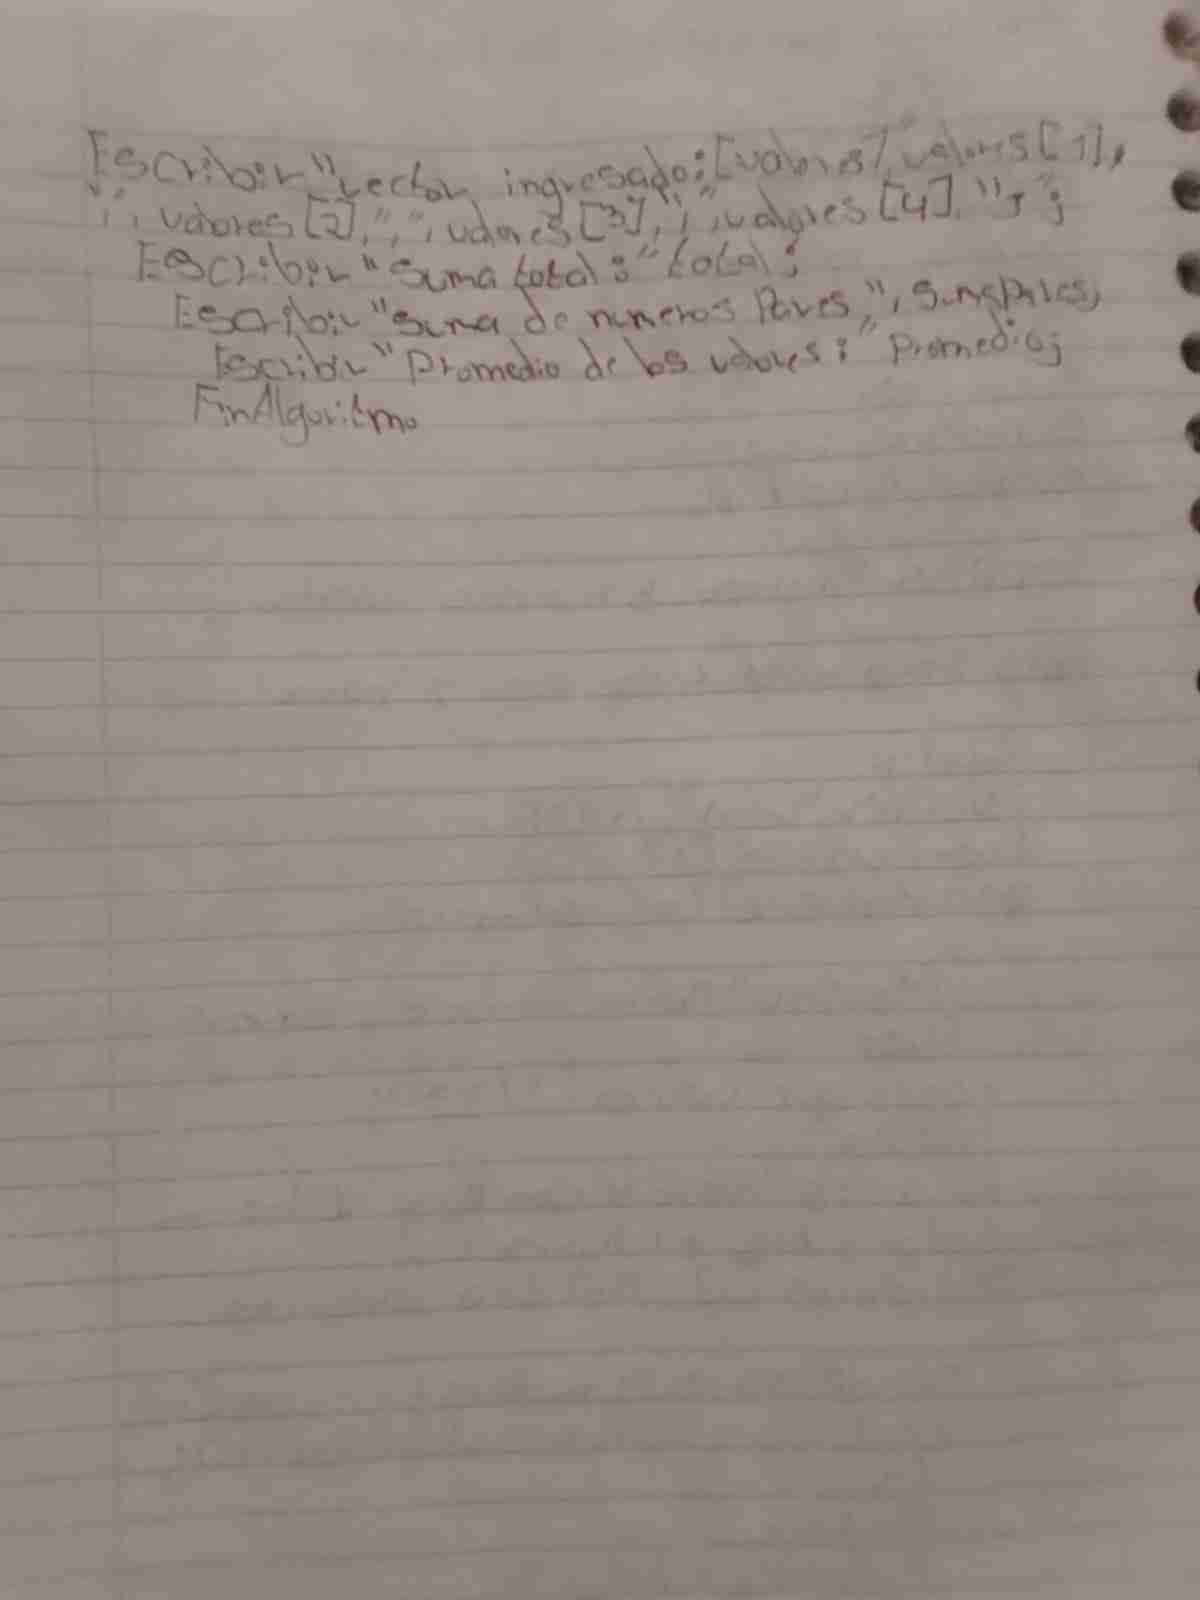 Escribir "vector ingresado:[valores], valores[1],
",", valores[2],",", valores[3],",", valores[4]."]";
Escribir "Suma total:" total;
Escribir "Suma de numeros Pares,",
Escribir "Promedio de los valores:" Promedio;
FinAlgoritmo